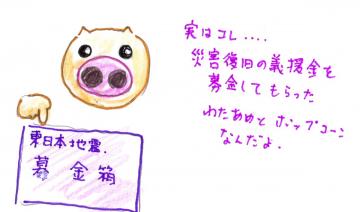 実はコレ....
災害復旧の義援金を
募金してもらった
わたあめと ポップコーン
なんだよ.
東日本地震.
募金箱